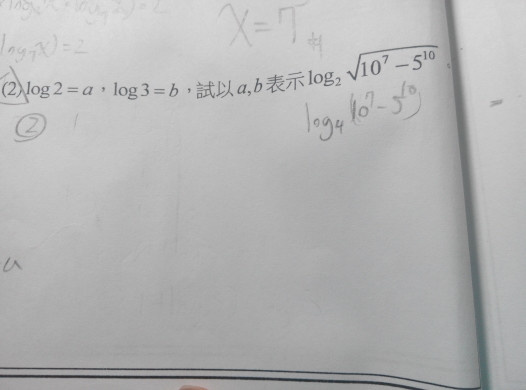 log₇x) = 2
x = 7
(2) log 2 = a，log 3 = b，試以 a, b 表示 log₂ √(10⁷ − 5¹⁰)。
②
log₄(10⁷ − 5¹⁰)